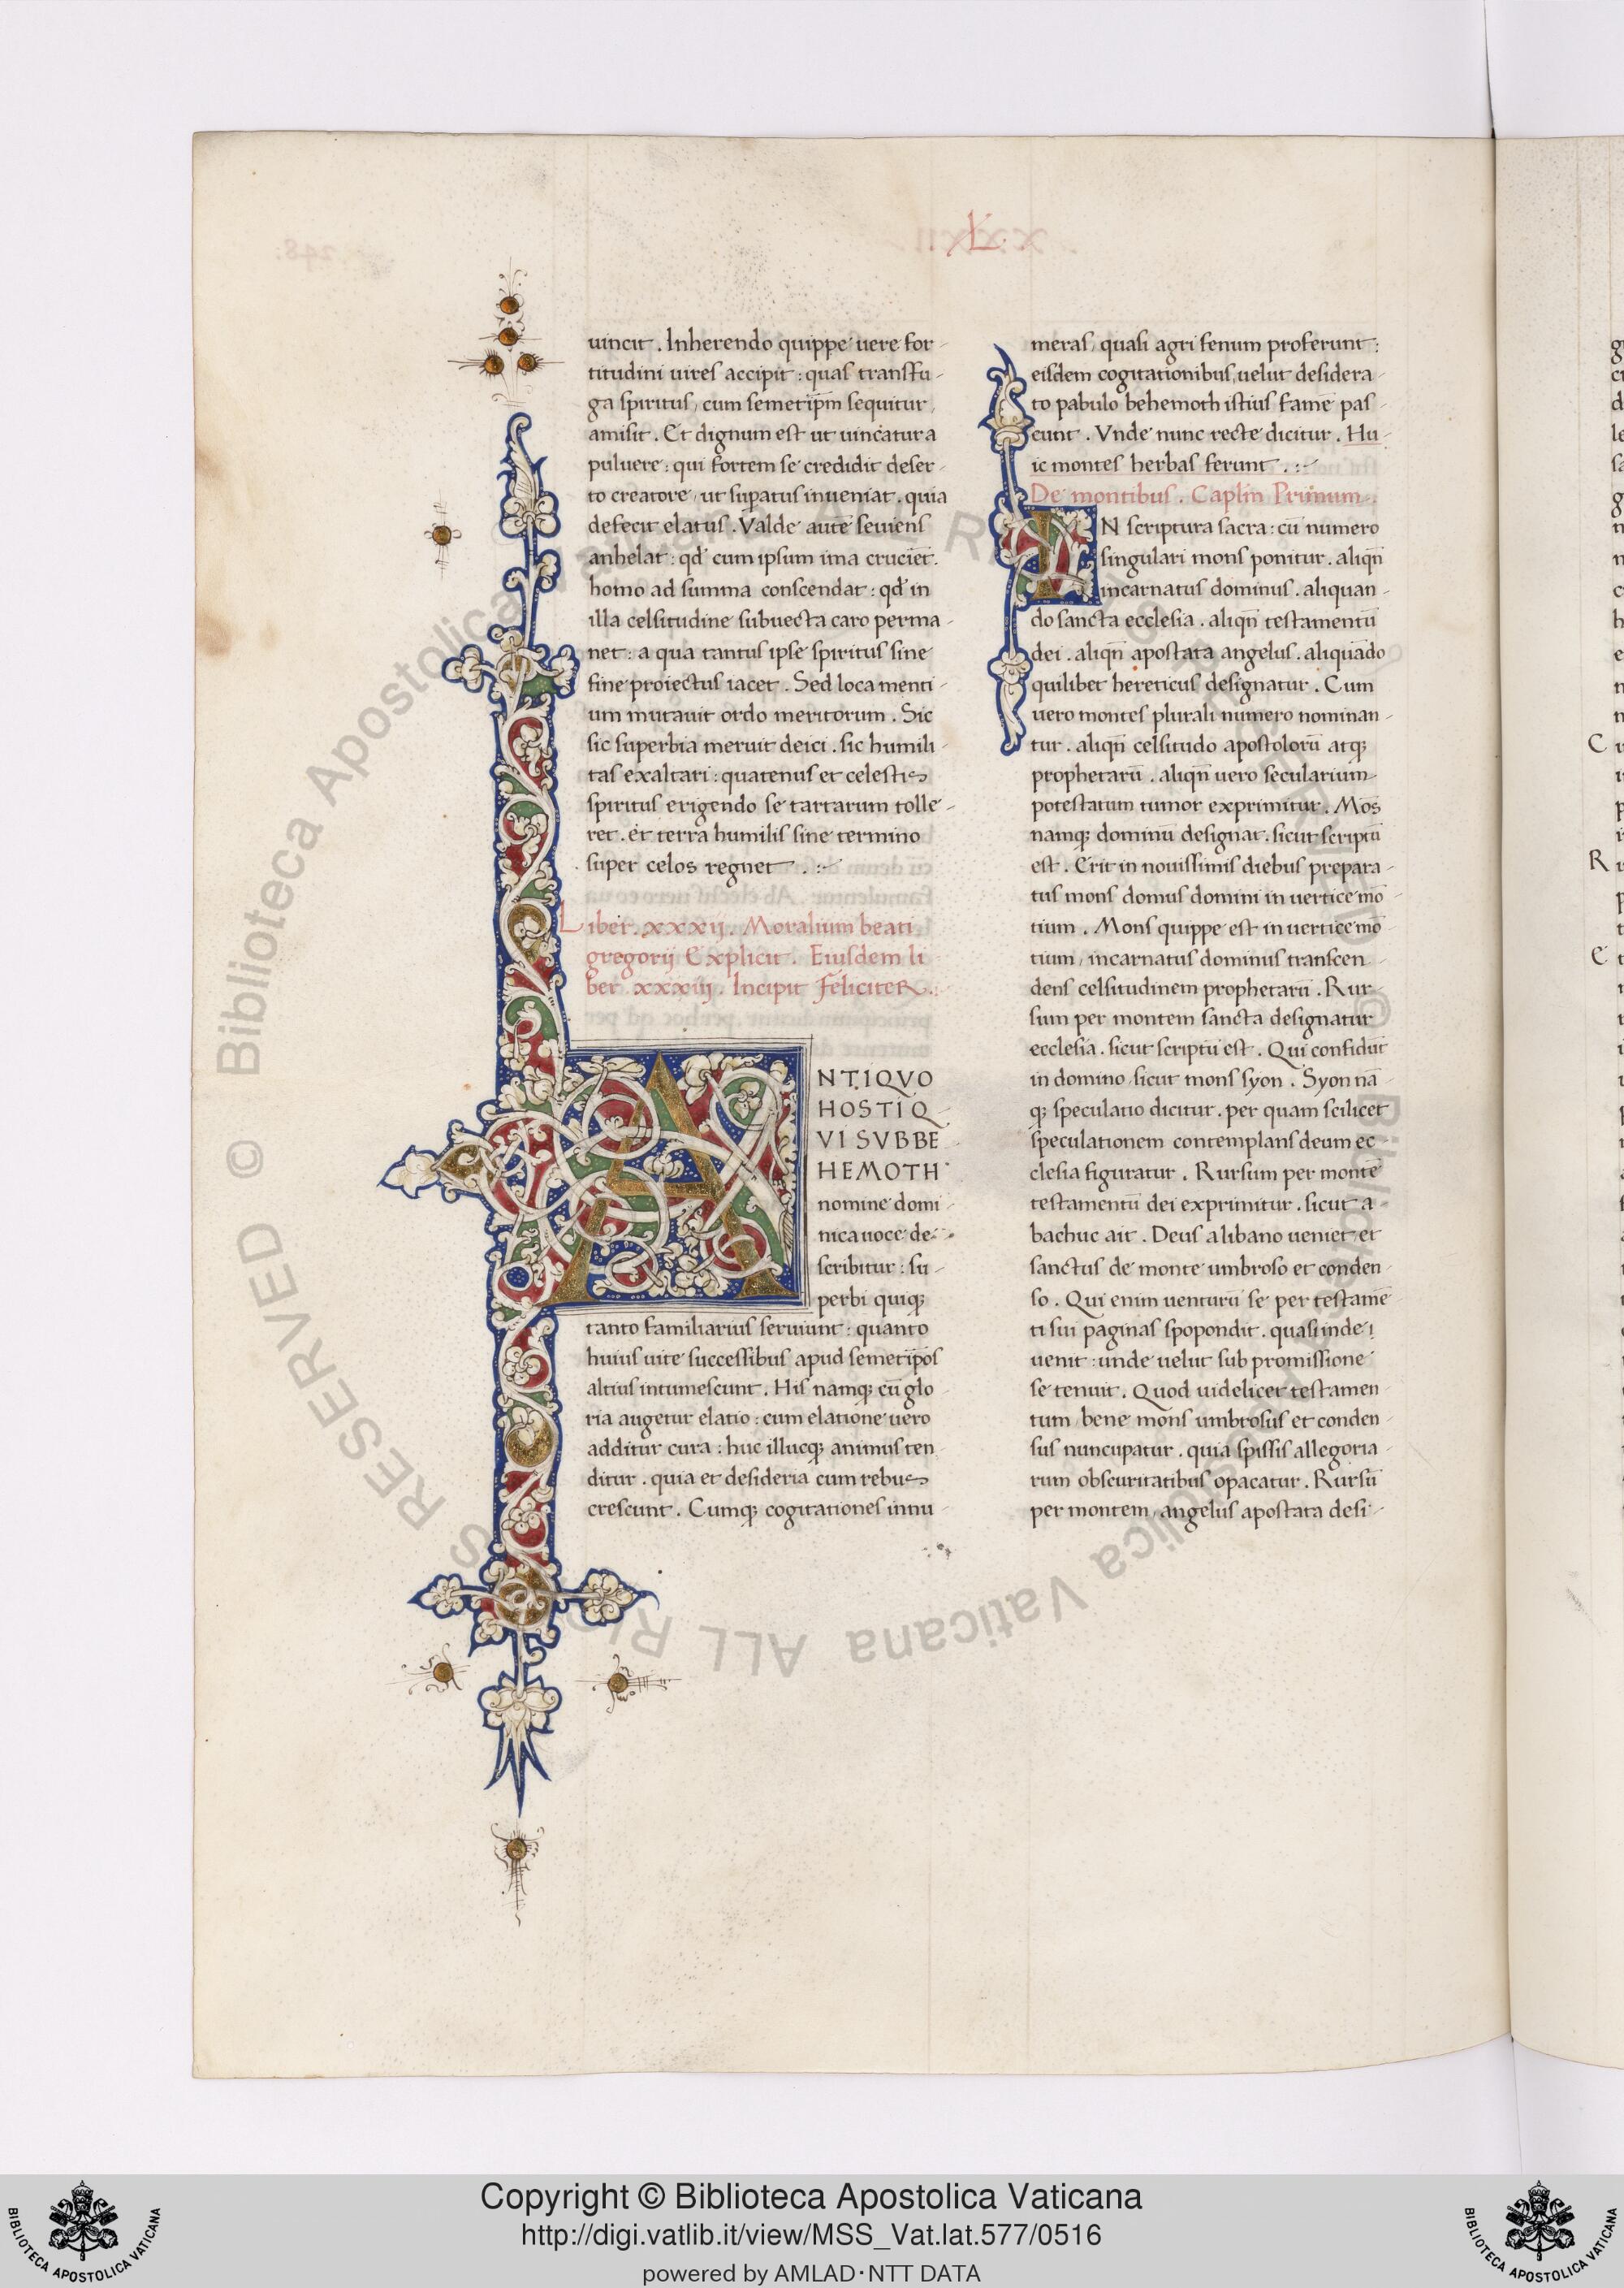 L.
uincit . Inherendo quippe uere for-
titudini uires accipit : quas transfu-
ga spiritus, cum semetip̄m sequitur,
amisit . Et dignum est ut uincatur a
puluere : qui fortem se credidit deser-
to creatore, ut sup̄atus inueniat . quia
defecit elatus . Valde autē seuiens
anhelat : qđ cum ipsum ima cruciēt.
homo ad summa conscendat : qđ in
illa celsitudine subuecta caro perma-
net : a qua tantus ipse spiritus sine
fine proiectus iacet . Sed loca menti-
um mutauit ordo meritorum . Sic
sic superbia meruit deici . sic humili-
tas exaltari : quatenus et celestis
spiritus erigendo se tartarum tolle-
ret . et terra humilis sine termino
super celos regnet . :~
Liber . xxxij . Moralium beati
gregorij Explicit . Eiusdem li
ber xxxiij . Incipit feliciter .:
ANTIQVO
HOSTI Q-
VI SVB BE
HEMOTH
nomine domi-
nica uoce de-
scribitur : su-
perbi quiqȝ
tanto familiarius seruiunt : quanto
huius uite successibus apud semetip̄os
altius intumescunt . His namqȝ cū glo
ria augetur elatio : cum elatione uero
additur cura : huc illucqȝ animus ten
ditur . quia et desideria cum rebus
crescunt . Cumqȝ cogitationes innu-
meras, quasi agri fenum proferunt:
eisdem cogitationibus, uelut desidera-
to pabulo behemoth istius famē pas-
cunt . Vnde nunc recte dicitur . Hu-
ic montes herbas ferunt . :~
De montibus . Capl̄m Primum .
IN scriptura sacra : cū numero
singulari mons ponitur . aliqn̄
incarnatus dominus . aliquan-
do sancta ecclesia . aliqn̄ testamentū
dei . aliqn̄ apostata angelus . aliquādo
quilibet hereticus designatur . Cum
uero montes plurali numero nominan-
tur . aliqn̄ celsitudo apostolorū atqȝ
prophetarū . aliqn̄ uero secularium
potestatum tumor exprimitur . Mōs
namqȝ dominū designat . sicut scriptū
est . Erit in nouissimis diebus prepara-
tus mons domus domini in uertice mō-
tium . Mons quippe est in uertice mō
tium, incarnatus dominus transcen-
dens celsitudinem prophetarū . Rur-
sum per montem sancta designatur
ecclesia . sicut scriptū est . Qui confidūt
in domino, sicut mons syon . Syon nā-
qȝ speculatio dicitur . per quam scilicet
speculationem contemplans deum ec-
clesia figuratur . Rursum per montē
testamentū dei exprimitur . sicut a-
bachuc ait . Deus a libano ueniet et
sanctus de monte umbroso et conden-
so . Qui enim uenturū se per testamē
ti sui paginas spopondit . quasi inde
uenit : unde uelut sub promissione
se tenuit . Quod uidelicet testamen-
tum, bene mons umbrosus et conden-
sus nuncupatur . quia spissis allegoria-
rum obscuritatibus opacatur . Rursū
per montem, angelus apostata desi-
© Biblioteca Apostolica Vaticana ALL RIGHTS RESERVED
Copyright © Biblioteca Apostolica Vaticana
http://digi.vatlib.it/view/MSS_Vat.lat.577/0516
powered by AMLAD·NTT DATA
BIBLIOTECA APOSTOLICA VATICANA
BIBLIOTECA APOSTOLICA VATICANA